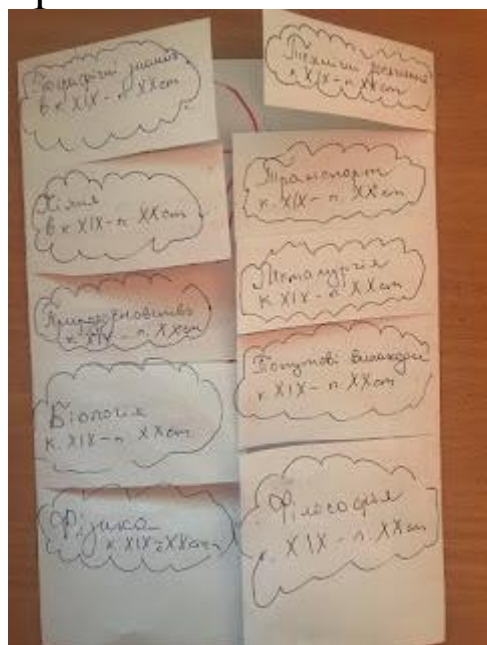 Географічні знання
в к XIX - п. XX ст
Хімія
в к XIX - п. XX ст
Природознавство
к. XIX - п. XX ст
Біологія
к. XIX - п. XX ст
Фізика
к. XIX - XX ст
Технічні
к. XIX - п. XX ст
Транспорт
к. XIX - п. XX ст
Металургія
к. XIX - п. XX ст
Побутові винаходи
к. XIX - п. XX ст
Філософія
к. XIX - п. XX ст